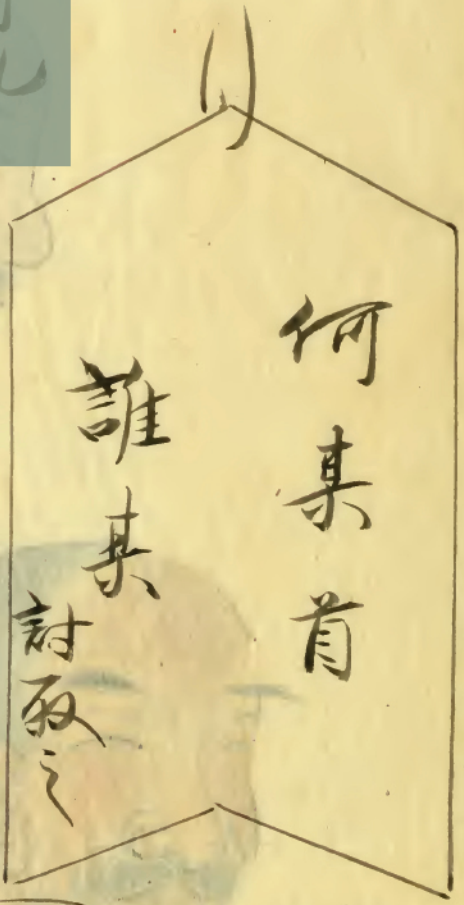 何某首
誰某
討取之